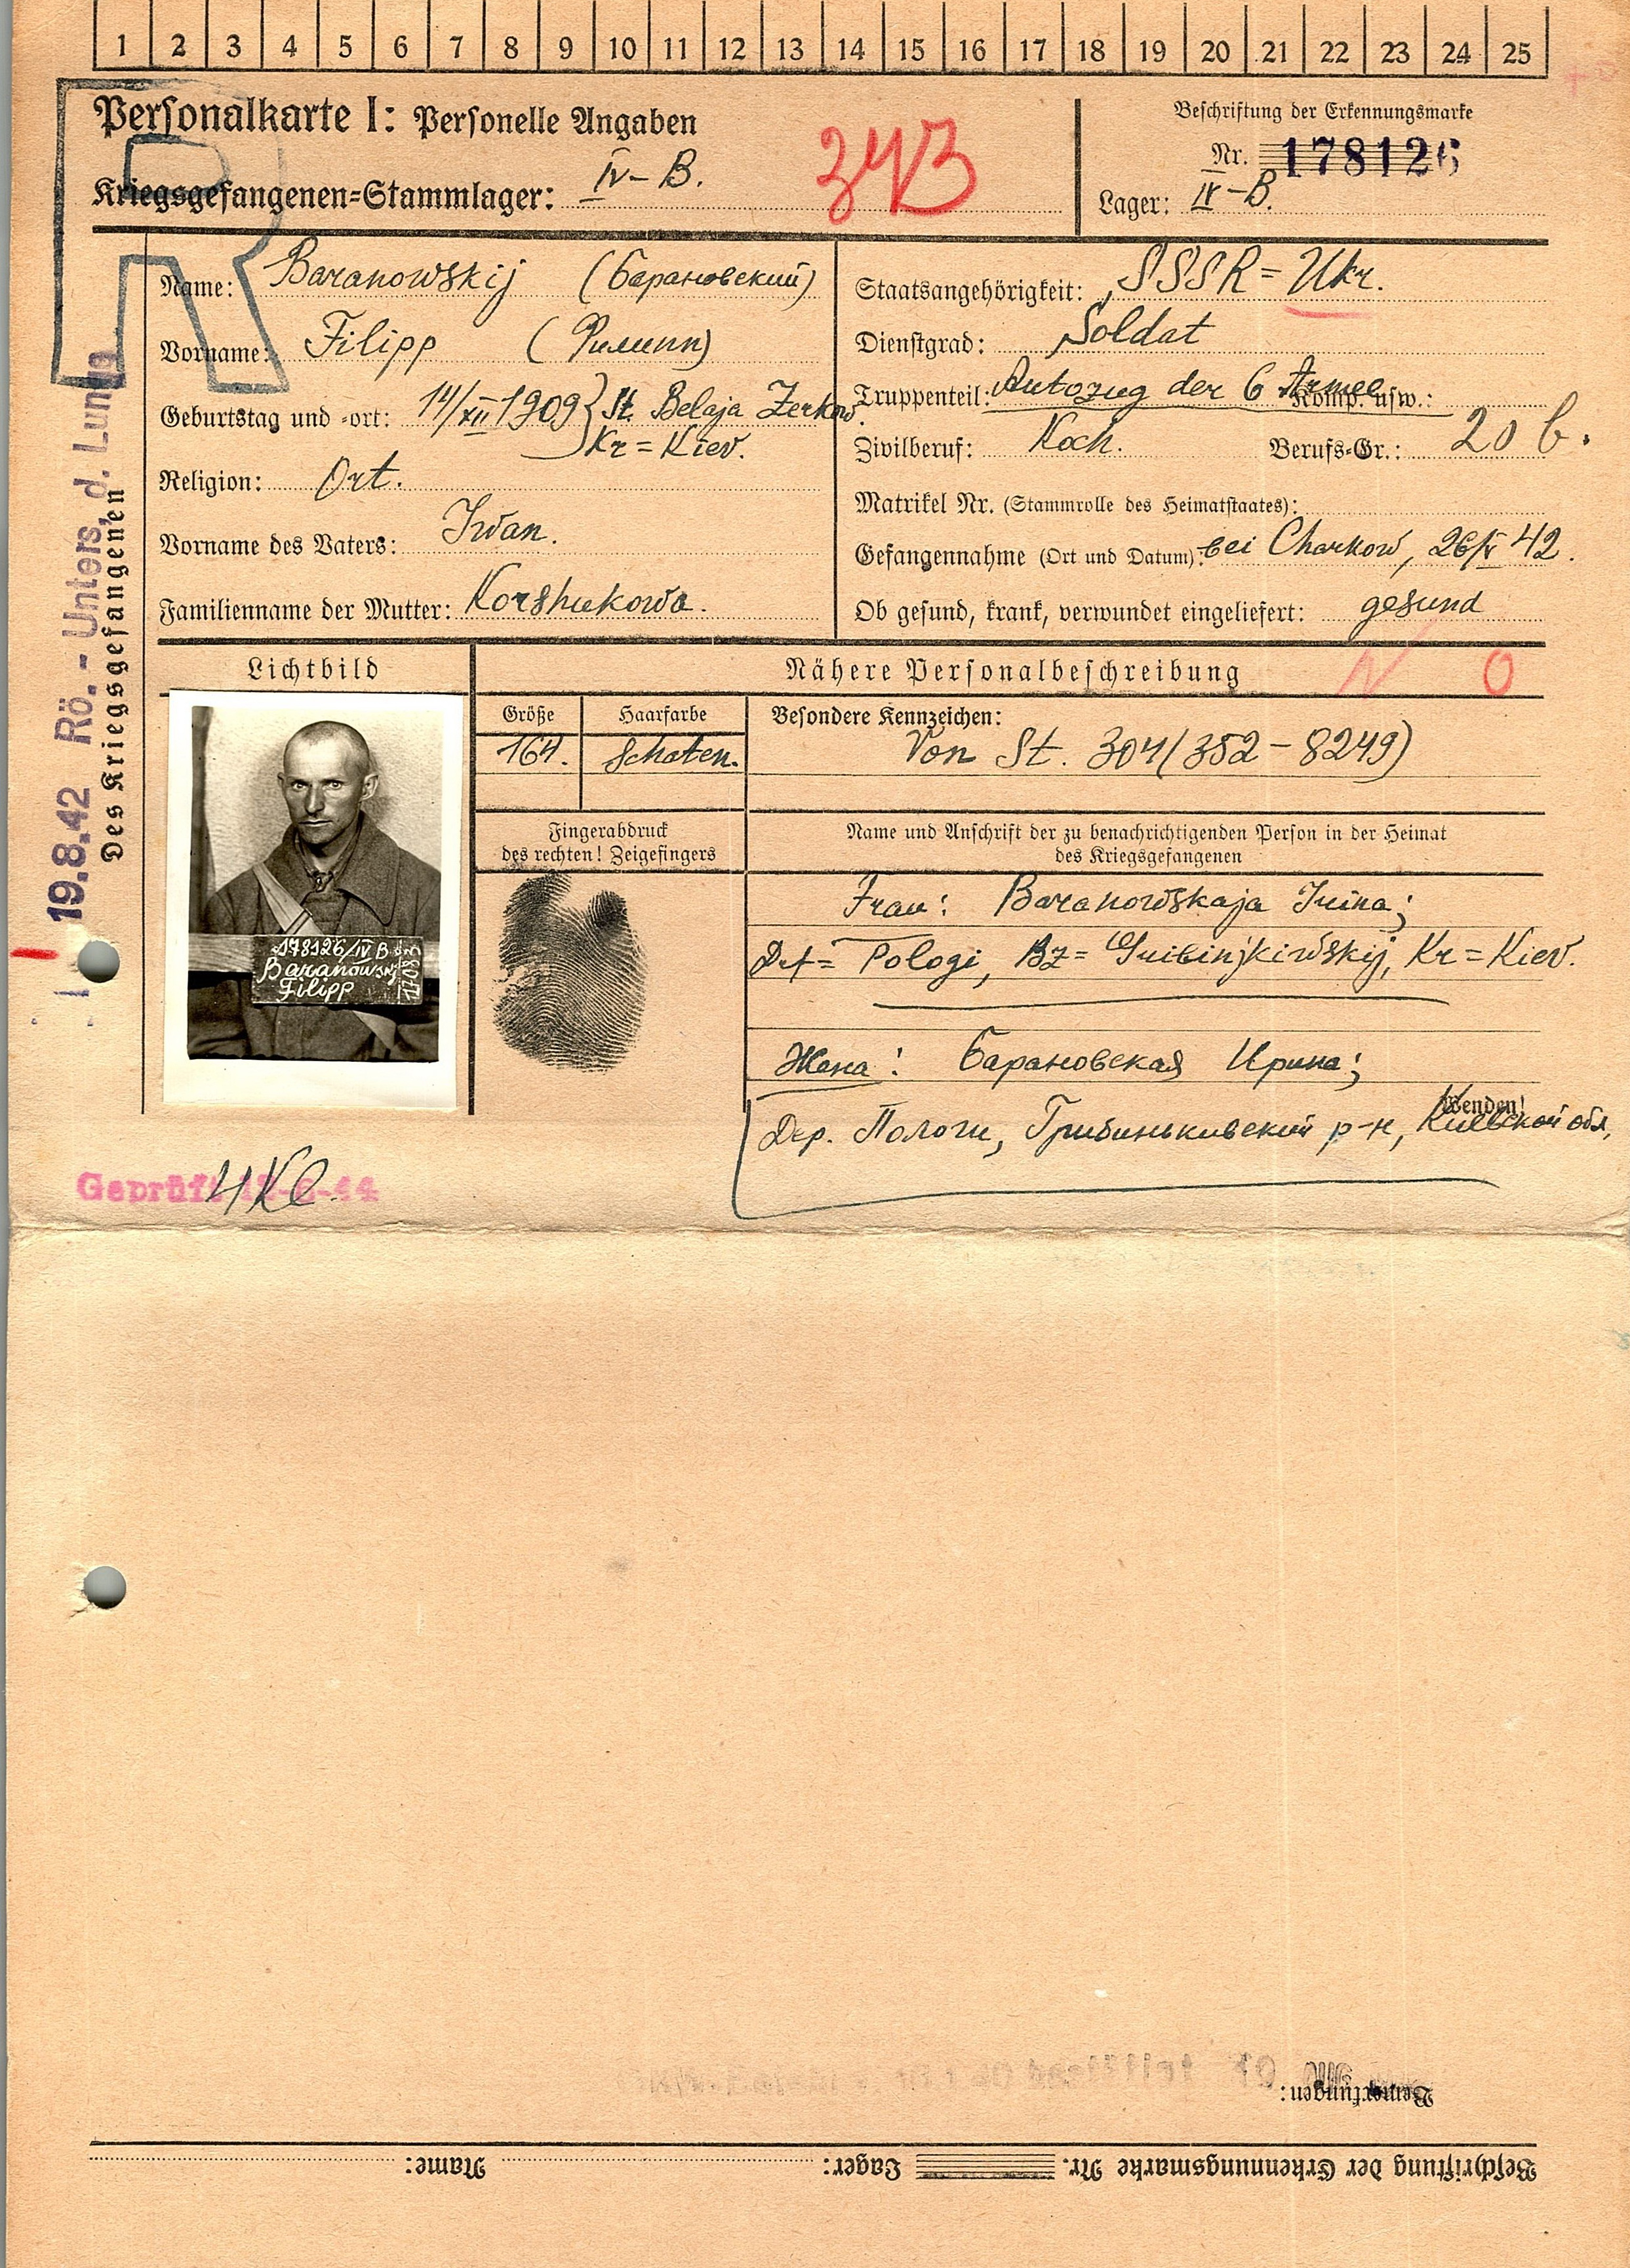 1 2 3 4 5 6 7 8 9 10 11 12 13 14 15 16 17 18 19 20 21 22 23 24 25
Personalkarte I: Personelle Angaben
Kriegsgefangenen=Stammlager: IV-B.
Beschriftung der Erkennungsmarke
Nr. 178126
Lager: IV-B.
Des Kriegsgefangenen
19.8.42 Rö.-Unters. d. Lunge
Name: Baranowskij (Барановский)
Vorname: Filipp (Филипп)
Geburtstag und =ort: 14/XII 1909 St. Belaja Zerkow.
Kr = Kiev.
Religion: Ort.
Vorname des Vaters: Iwan.
Familienname der Mutter: Korshukowa.
Staatsangehörigkeit: SSSR = Ukr.
Dienstgrad: Soldat
Truppenteil: Autozug der 6 Armee Komp. usw.:
Zivilberuf: Koch. Berufs=Gr.: 20 b.
Matrikel Nr. (Stammrolle des Heimatstaates):
Gefangennahme (Ort und Datum): bei Charkow, 26/V 42.
Ob gesund, krank, verwundet eingeliefert: gesund
Lichtbild
178126/IV B
Baranowskij
Filipp
Nähere Personalbeschreibung N O
Größe
164.
Haarfarbe
Schaten.
Besondere Kennzeichen:
Von St. 304 (352-8249)
Fingerabdruck
des rechten! Zeigefingers
Name und Anschrift der zu benachrichtigenden Person in der Heimat
des Kriegsgefangenen
Frau: Baranowskaja Irina;
Drf = Pologi, Bz = Kr = Kiev.
Жена: Барановская Ирина;
Wenden!
Дер. Пологи, Грибиньковский р-н, Киевской обл,
Geprüft 4 Kl.
Bemerkungen:
Beschriftung der Erkennungsmarke Nr. Lager: Name: